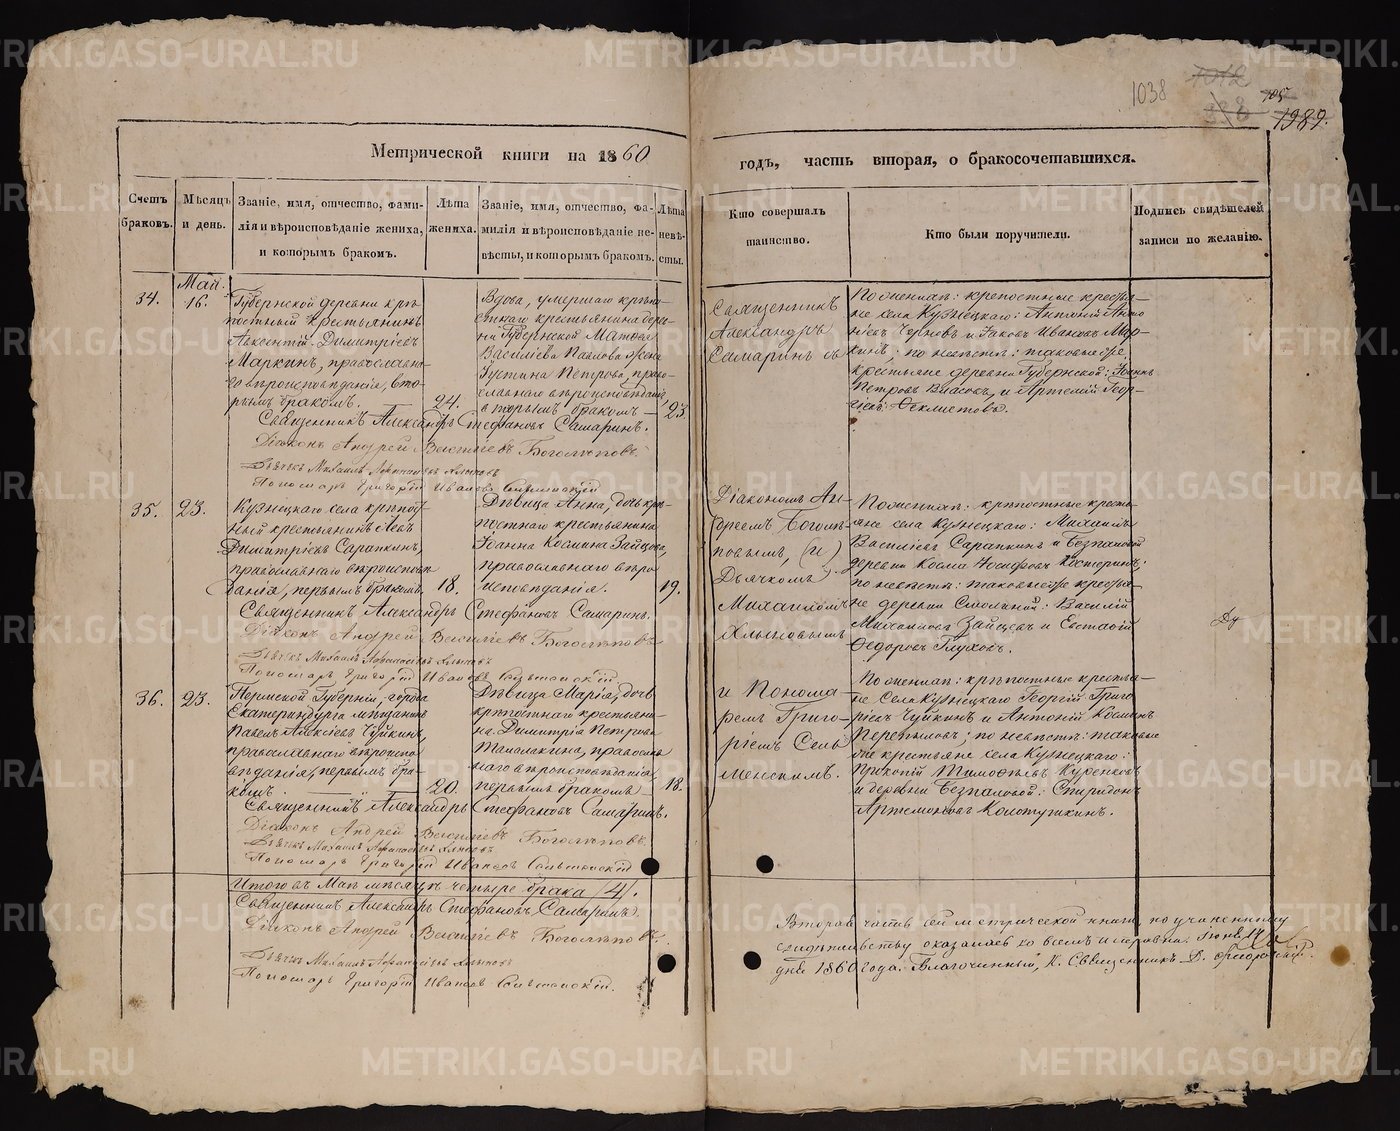 1038
105
1989.
Метрической книги на 1860
годъ, часть вторая, о бракосочетавшихся.
Счетъ браковъ.
Мѣсяцъ и день.
Званіе, имя, отчество, фами-
лія и вѣроисповѣданіе жениха,
и которымъ бракомъ.
Лѣта
жениха.
Званіе, имя, отчество, фа-
милія и вѣроисповѣданіе не-
вѣсты, и которымъ бракомъ.
Лѣта
невѣ-
сты.
Кто совершалъ
таинство.
Кто были поручители.
Подпись свидѣтелей
записи по желанію.
34.
Май.
16.
Губернской деревни крѣ-
постный крестьянинъ
Авксентій Димитріевъ
Маркинъ, православна-
го вѣроисповѣданія, вто-
рымъ бракомъ.
24.
Вдова, умершаго крѣпо-
стнаго крестьянина дерев-
ни Губернской Матвея
Васильева Павлова жена
Іустина Петрова, право-
славнаго вѣроисповѣданія
вторымъ бракомъ
23
Священникъ
Александръ
Самаринъ съ
По женихѣ: крепостные крестья-
не села Кузнецкаго: Антоній Анто
ніевъ Чугновъ и Іаковъ Ивановъ Мар-
кинъ; по невѣстѣ: таковые же
крестьяне деревни Губернской: Іоаннъ
Петровъ Власовъ, и Артемій Геор-
гіевъ Феклистовъ.
Священникъ Александръ Стефановъ Самаринъ.
Діаконъ Андрей Васильевъ Боголѣповъ.
Дьячекъ Михаилъ Афанасьевъ Хлыновъ
Пономарь Григорій Ивановъ Сельменскій
35.
23.
Кузнецкаго села крѣпост-
ный крестьянинъ Левъ
Димитріевъ Сарапкинъ,
православнаго вѣроиспов
данія, первымъ бракомъ.
18.
Дѣвица Анна, дочь крѣ-
постнаго крестьянина
Іоанна Космина Зайцова,
православнаго вѣро
исповѣданія.
19.
Діакономъ Ан-
дреемъ Боголѣ-
повымъ, (и)
Дьячкомъ
Михаиломъ
Хлыновымъ
По женихѣ: крѣпостные кресть-
яне села Кузнецкаго: Михаилъ
Василіевъ Сарапкинъ и Безпаловой
деревни Косма Іосифовъ Костеринъ;
по невѣстѣ: таковые же крестья-
не деревни Смолиной: Василій
Михаиловъ Зайцевъ и Евстафій
Ѳедоровъ Глуховъ.
Священникъ Александръ Стефановъ Самаринъ.
Діаконъ Андрей Васильевъ Боголѣповъ
Дьячекъ Михаилъ Афанасьевъ Хлыновъ
Пономарь Григорій Ивановъ Сельменскій
36.
23.
Пермской Губерніи, города
Екатеринбурга мѣщанинъ
Павелъ Алексіевъ Чуйкинъ,
православнаго вѣроиспо-
вѣданія, первымъ бра-
комъ.
20.
Дѣвица Марія, дочь
крѣпостнаго крестьяни-
на Димитрія Петрова
Мамалкина, православ
наго вѣроисповѣданія,
первымъ бракомъ
18.
и Понома-
ремъ Григо-
ріемъ Сель
менскимъ.
По женихѣ: крѣпостные крестья-
не Села Кузнецкаго Георгій Григо
ріевъ Чуйкинъ и Антоній Косминъ
Перетыновъ; по невѣстѣ: таковые
же крестьяне села Кузнецкаго:
Прокопій Тимофѣевъ Куренковъ
и деревни Безпаловой: Спиридонъ
Артемоновъ Колотушкинъ.
Священникъ Александръ Стефановъ Самаринъ.
Діаконъ Андрей Васильевъ Боголѣповъ.
Дьячекъ Михаилъ Афанасьевъ Хлыновъ
Пономарь Григорій Ивановъ Сельменскій
Итого въ Маѣ мѣсяцѣ четыре брака /4/.
Священникъ Александръ Стефановъ Самаринъ.
Діаконъ Андрей Васильевъ Боголѣповъ.
Дьячекъ Михаилъ Афанасьевъ Хлыновъ
Пономарь Григорій Ивановъ Сельменскій.
Вторая часть сей метрической книги, по учиненному
свидѣтельству оказалась во всемъ исправна. Іюня 14
дня 1860 года. Благочинный, К. Священникъ
METRIKI.GASO-URAL.RU